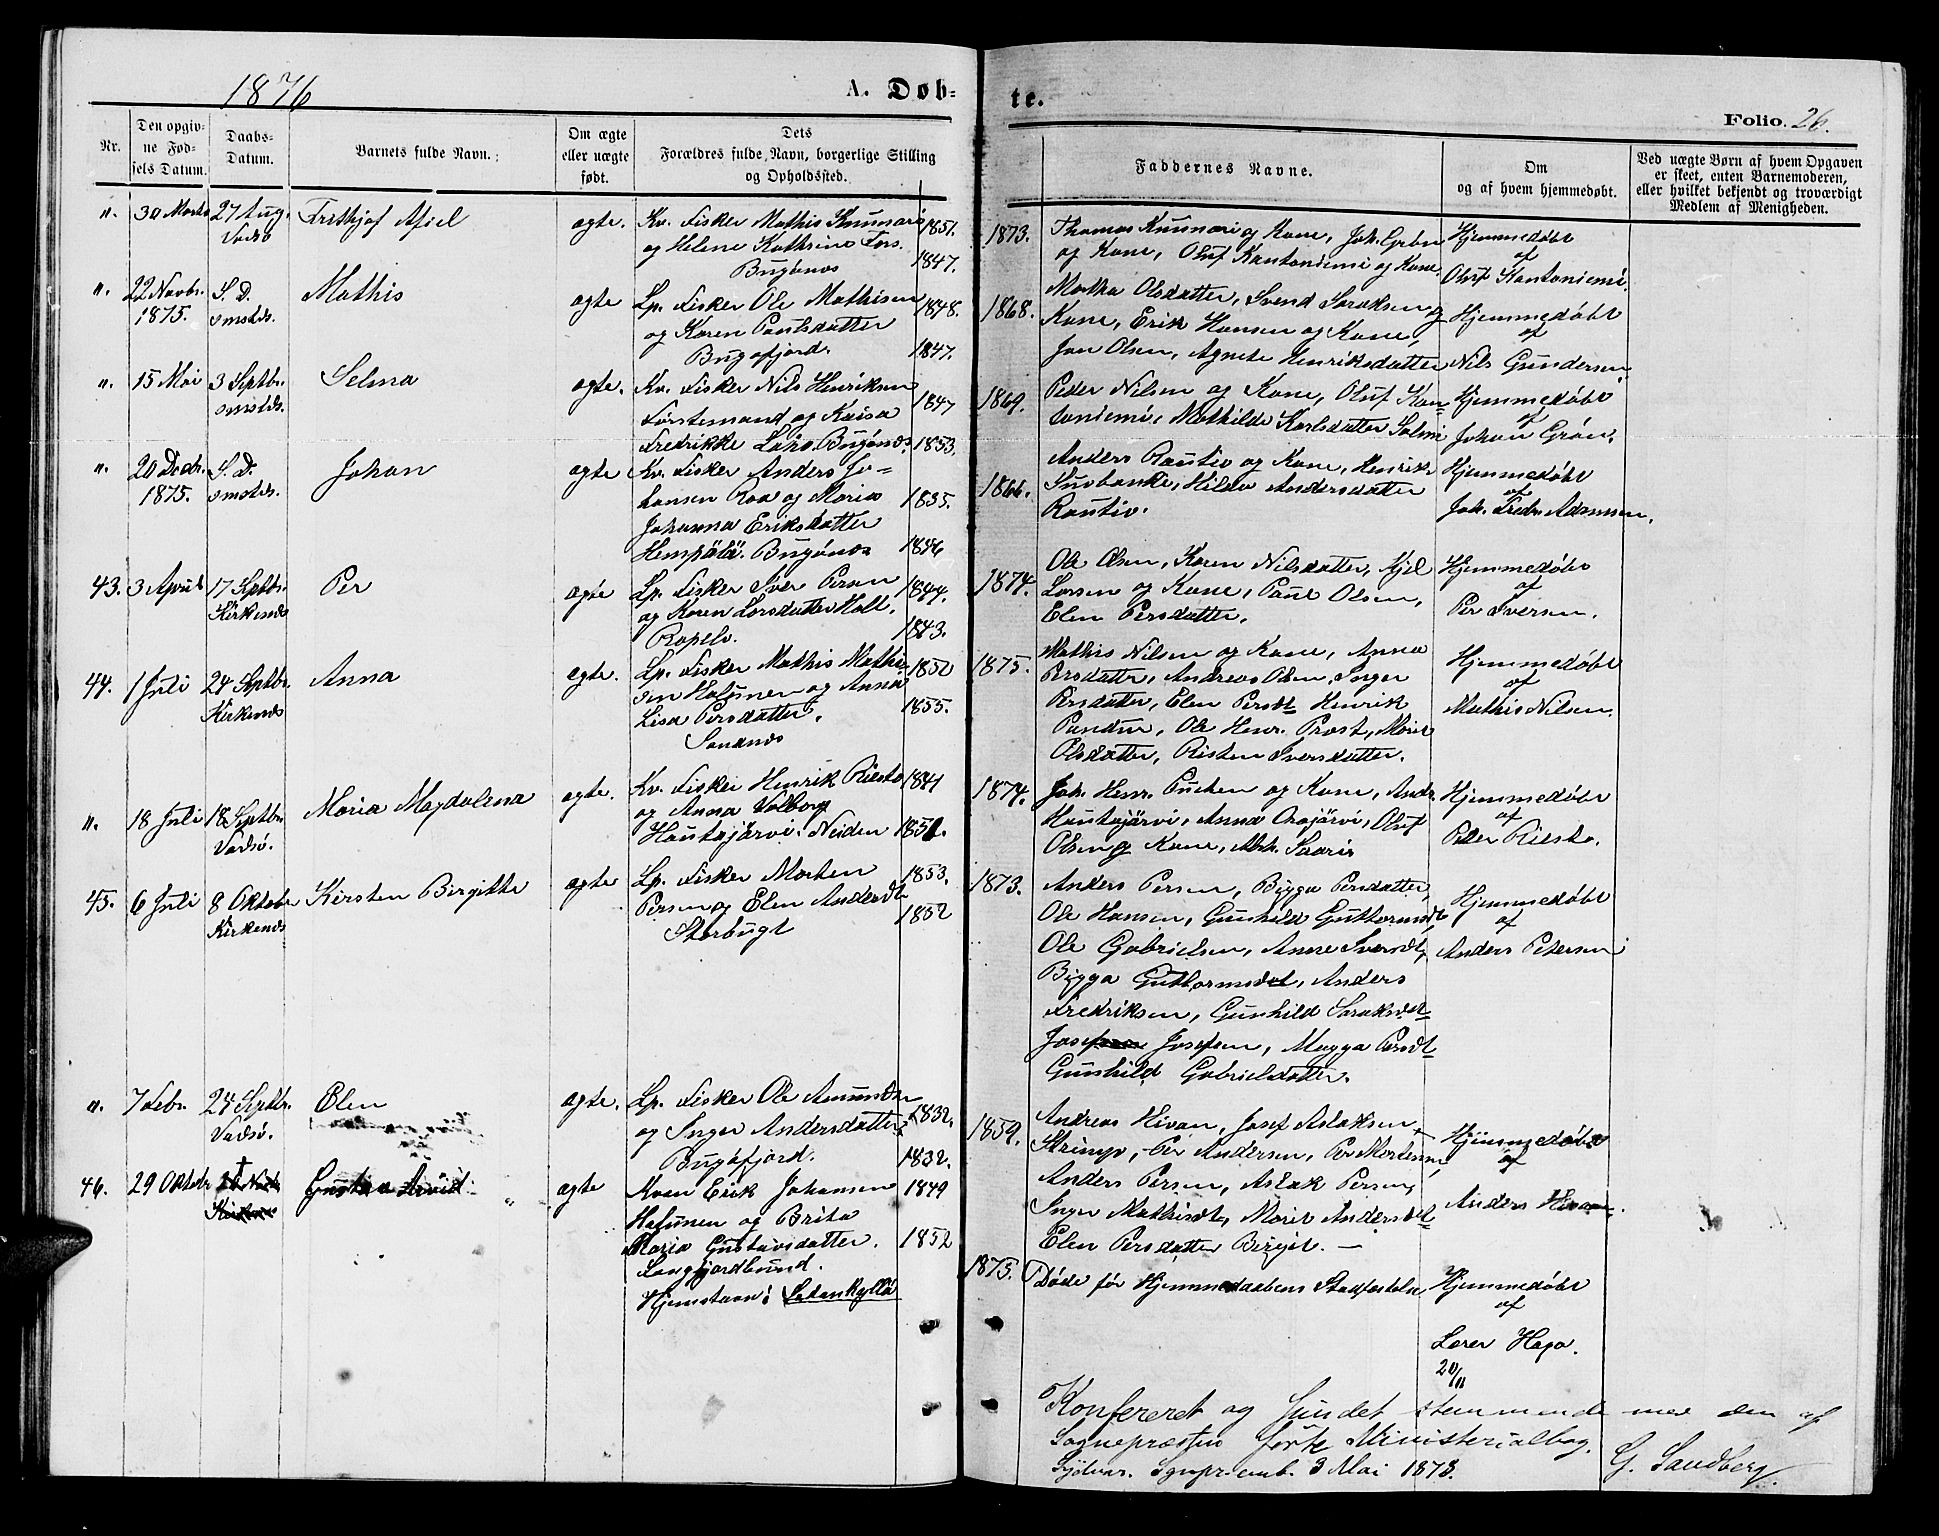 1876
A. Døb-
te.
Folio. 26.
Nr.
Den opgiv-
ne Fød-
sels Datum.
Daabs-
Datum.
Barnets fulde Navn.
Om ægte
eller uægte
født.
Dets
Forældres fulde Navn, borgerlige Stilling
og Opholdssted.
Faddernes Navne.
Om
og af hvem hjemmedøbt.
Ved uægte Børn af hvem Opgaven
er skeet, enten Barnemoderen,
eller hvilket bekjendt og troværdigt
Medlem af Menigheden.
". 30 Marts 27 Aug. Frithjof Afiel ægte. Kv. Fisker Mathis Knunari 1851.
Vadsø og Helene Kathrine Fors.
Bugønes 1847.
1873. Thomas Knunari og Kone, Joh. Grøn
og Kone, Oluf Kantoniemi og Kone
Hjemmedøbt
af
Oluf Kantoniemi.
". 22 Novbr. S. D. Mathis ægte Lp. Fisker Ole Mathisen 1848.
1875. omstds. og Karen Paulsdatter
Bugøfjord. 1847.
1868. Matha Olsdatter, Svend Saraksen og
Kone, Erik Hansen og Kone,
Jon Olsen, Agnete Henriksdatter
Hjemmedøbt
af
Nils Gundersen
". 15 Mai 3 Septbr. Selma ægte. Kv. Fisker Nils Henriksen
omstds. Förstemand og Kaisa 1847
Fredrikke Laho. Bugønes. 1853.
1869. Peder Nilsen og Kone, Oluf Kan-
toniemi, Mathilde Karlsdatter Salmi
Hjemmedøbt
af
Johan Grøn.
". 20 Decbr. S. D. Johan ægte Kv. Fisker Anders Jo-
1875. omstds. hansen Raa og Maria 1835.
Johanna Eriksdatter
Hempälä. Bugønes 1846
1866. Anders Rautio og Kone, Henrik
Suobanki, Hilda Andersdatter
Rautio.
Hjemmedøbt
af
Joh. Fredr. Adamsen.
43. 3 April 17 Septbr. Per ægte Lp. Fisker Iver Persen 1844.
Kirkenes og Karen Larsdatter Halt,
Ropelv. 1843.
1874. Ole Olsen, Karen Nilsdatter, Kjel
Larsen og Kone, Paul Olsen,
Elen Persdatter.
Hjemmedøbt
af
Per Iversen.
44. 1 Juli 24 Septbr. Anna ægte. Lp. Fisker Mathis Mathi- 1850
Kirkenes sen Halonen og Anna
Lisa Persdatter. 1855.
Sandnes
1875. Mathis Nilsen og Kone, Anna
Persdatter, Andreas Olsen, Inger
Persdatter, Elen Persdt Henrik
Ole Henr. Prost, Marit
Olsdatter, Risten Iversdatter.
Hjemmedøbt
af
Mathis Nilsen.
". 18 Juli 18 Septbr. Maria Magdalena ægte. Kv. Fisker Henrik Riesto 1841
Vadsø. og Anna Valborg
Hautajärvi. Neiden 1851.
1874. Joh. Henr. Puchen og Kone, Andr.
Hautajärvi, Anna Orajärvi, Oluf
Olsen og Kone, Abh. Saari
Hjemmedøbt
af
Peder Riesto.
45. 6 Juli 8 Oktober Kirsten Birgitte ægte Lp. Fisker Morten 1853.
Kirkenes Persen og Elen Andersdt
Storbugt 1852
1873. Anders Persen, Bigga Persdatter,
Ole Hansen, Gunhild Guttormsdt,
Ole Gabrielsen, Anne Iversdt,
Bigga Guttormsdt, Anders
Fredriksen, Gunhild Saraksdt
Josef Josefsen, Magga Persdt
Gunhild Gabrielsdatter.
Hjemmedøbt
af
Anders Petersen
". 7 Febr. 24 Septbr. Elen ægte. Lp. Fisker Ole Amundsen
Vadsø. og Inger Andersdatter 1832.
Bugøfjord. 1832.
1859. Andreas Hivan, Josef Aslaksen
Strimp, Per Andersen, Per Mortensen,
Anders Persen, Aslak Persen,
Inger Mathisdt, Marit Andersdt
Elen Persdatter Birgit. —
Hjemmedøbt
af
Anders Hivan.
46. 29 Oktobr Gustav Arvid " ægte Kven Erik Johansen 1849
Halonen og Brita
Maria Gustavsdatter. 1852
Langfjordbund.
Hjemstavn: Satankyllä
1875. Døde før Hjemmedaabens Stadfæstelse
Hjemmedøbt
af
Lærer Haga.
20/11
Konfereret og fundet stemmende med den af
Sognepræsten førte Ministerialbog.
Sydvar. Sgnpr.emb. 3 Mai 1878.
G. Sandberg.